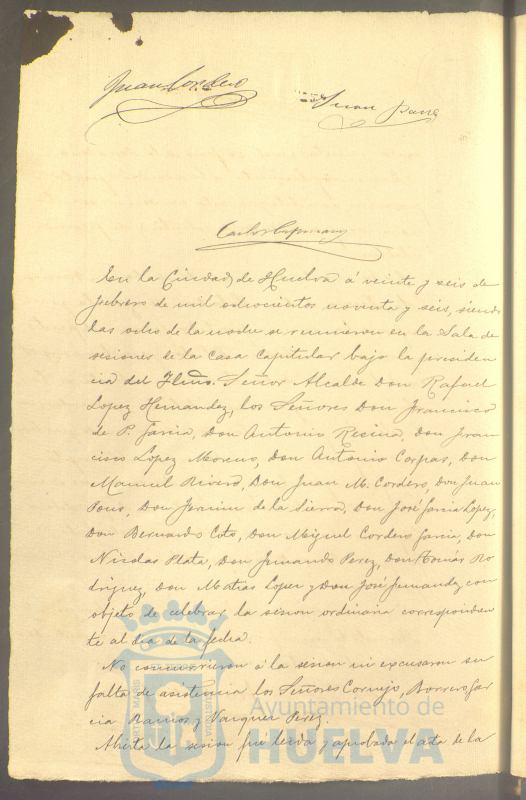 Juan Cordero
Juan Pons
Carlos
En la Ciudad de Huelva á veinte y seis de
febrero de mil ochocientos noventa y seis, siendo
las ocho de la noche se reunieron en la Sala de
sesiones de la casa capitular bajo la presiden
cia del Iltmo. Señor Alcalde Don Rafael
Lopez Hernandez, los Señores Don Francisco
de P. Garcia, Don Antonio Resina, Don Fran
cisco Lopez Moreno, Don Antonio Corpas, Don
Manuel Rivero, Don Juan M. Cordero, Don Juan
Pons, Don de la Sierra, Don José Garcia Lopez,
Don Bernardo Coto, Don Miguel Cordero Garcia, Don
Nicolas Plata, Don Fernando Perez, Don Tomás Ro
driguez, Don Matias Lopez y Don José Fernandez con
objeto de celebrar la sesion ordinaria correspondien
te al dia de la fecha.
No concurrieron á la sesion ni excusaron su
falta de asistencia los Señores Cornejo, Borrero Gar
cia Ramos y Vazquez Perez.
Abierta la sesion fué leida y aprobada el acta de la
Ayuntamiento de
HUELVA